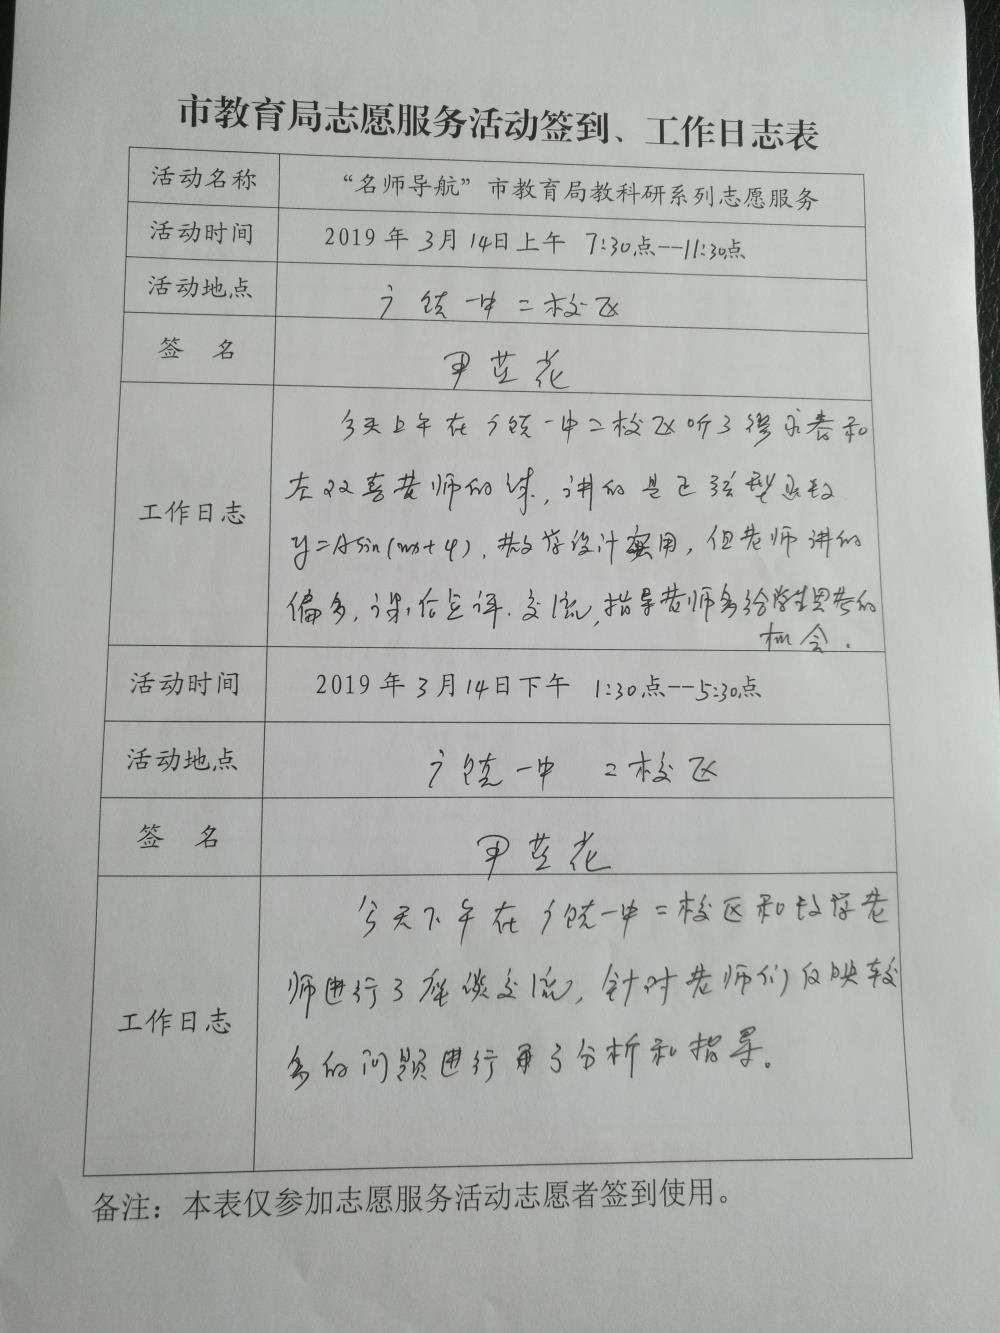 市教育局志愿服务活动签到、工作日志表
活动名称 “名师导航”市教育局教科研系列志愿服务
活动时间 2019年3月14日上午 7:30点--11:30点
活动地点 广饶一中二校区
签 名 芝花
今天上午在广饶一中二校区听了 永春和
左双喜老师的课，讲的是正弦型函数
工作日志
y=Asin(wx+φ)，教学设计实用，但老师讲的
偏多，课后点评、交流，指导老师多给学生思考的
机会．
活动时间 2019年3月14日下午 1:30点--5:30点
活动地点 广饶一中 二校区
签 名 芝花
今天下午在广饶一中二校区和数学老
师进行了座谈交流，针对老师们反映较
工作日志
多的问题进行了分析和指导。
备注：本表仅参加志愿服务活动志愿者签到使用。